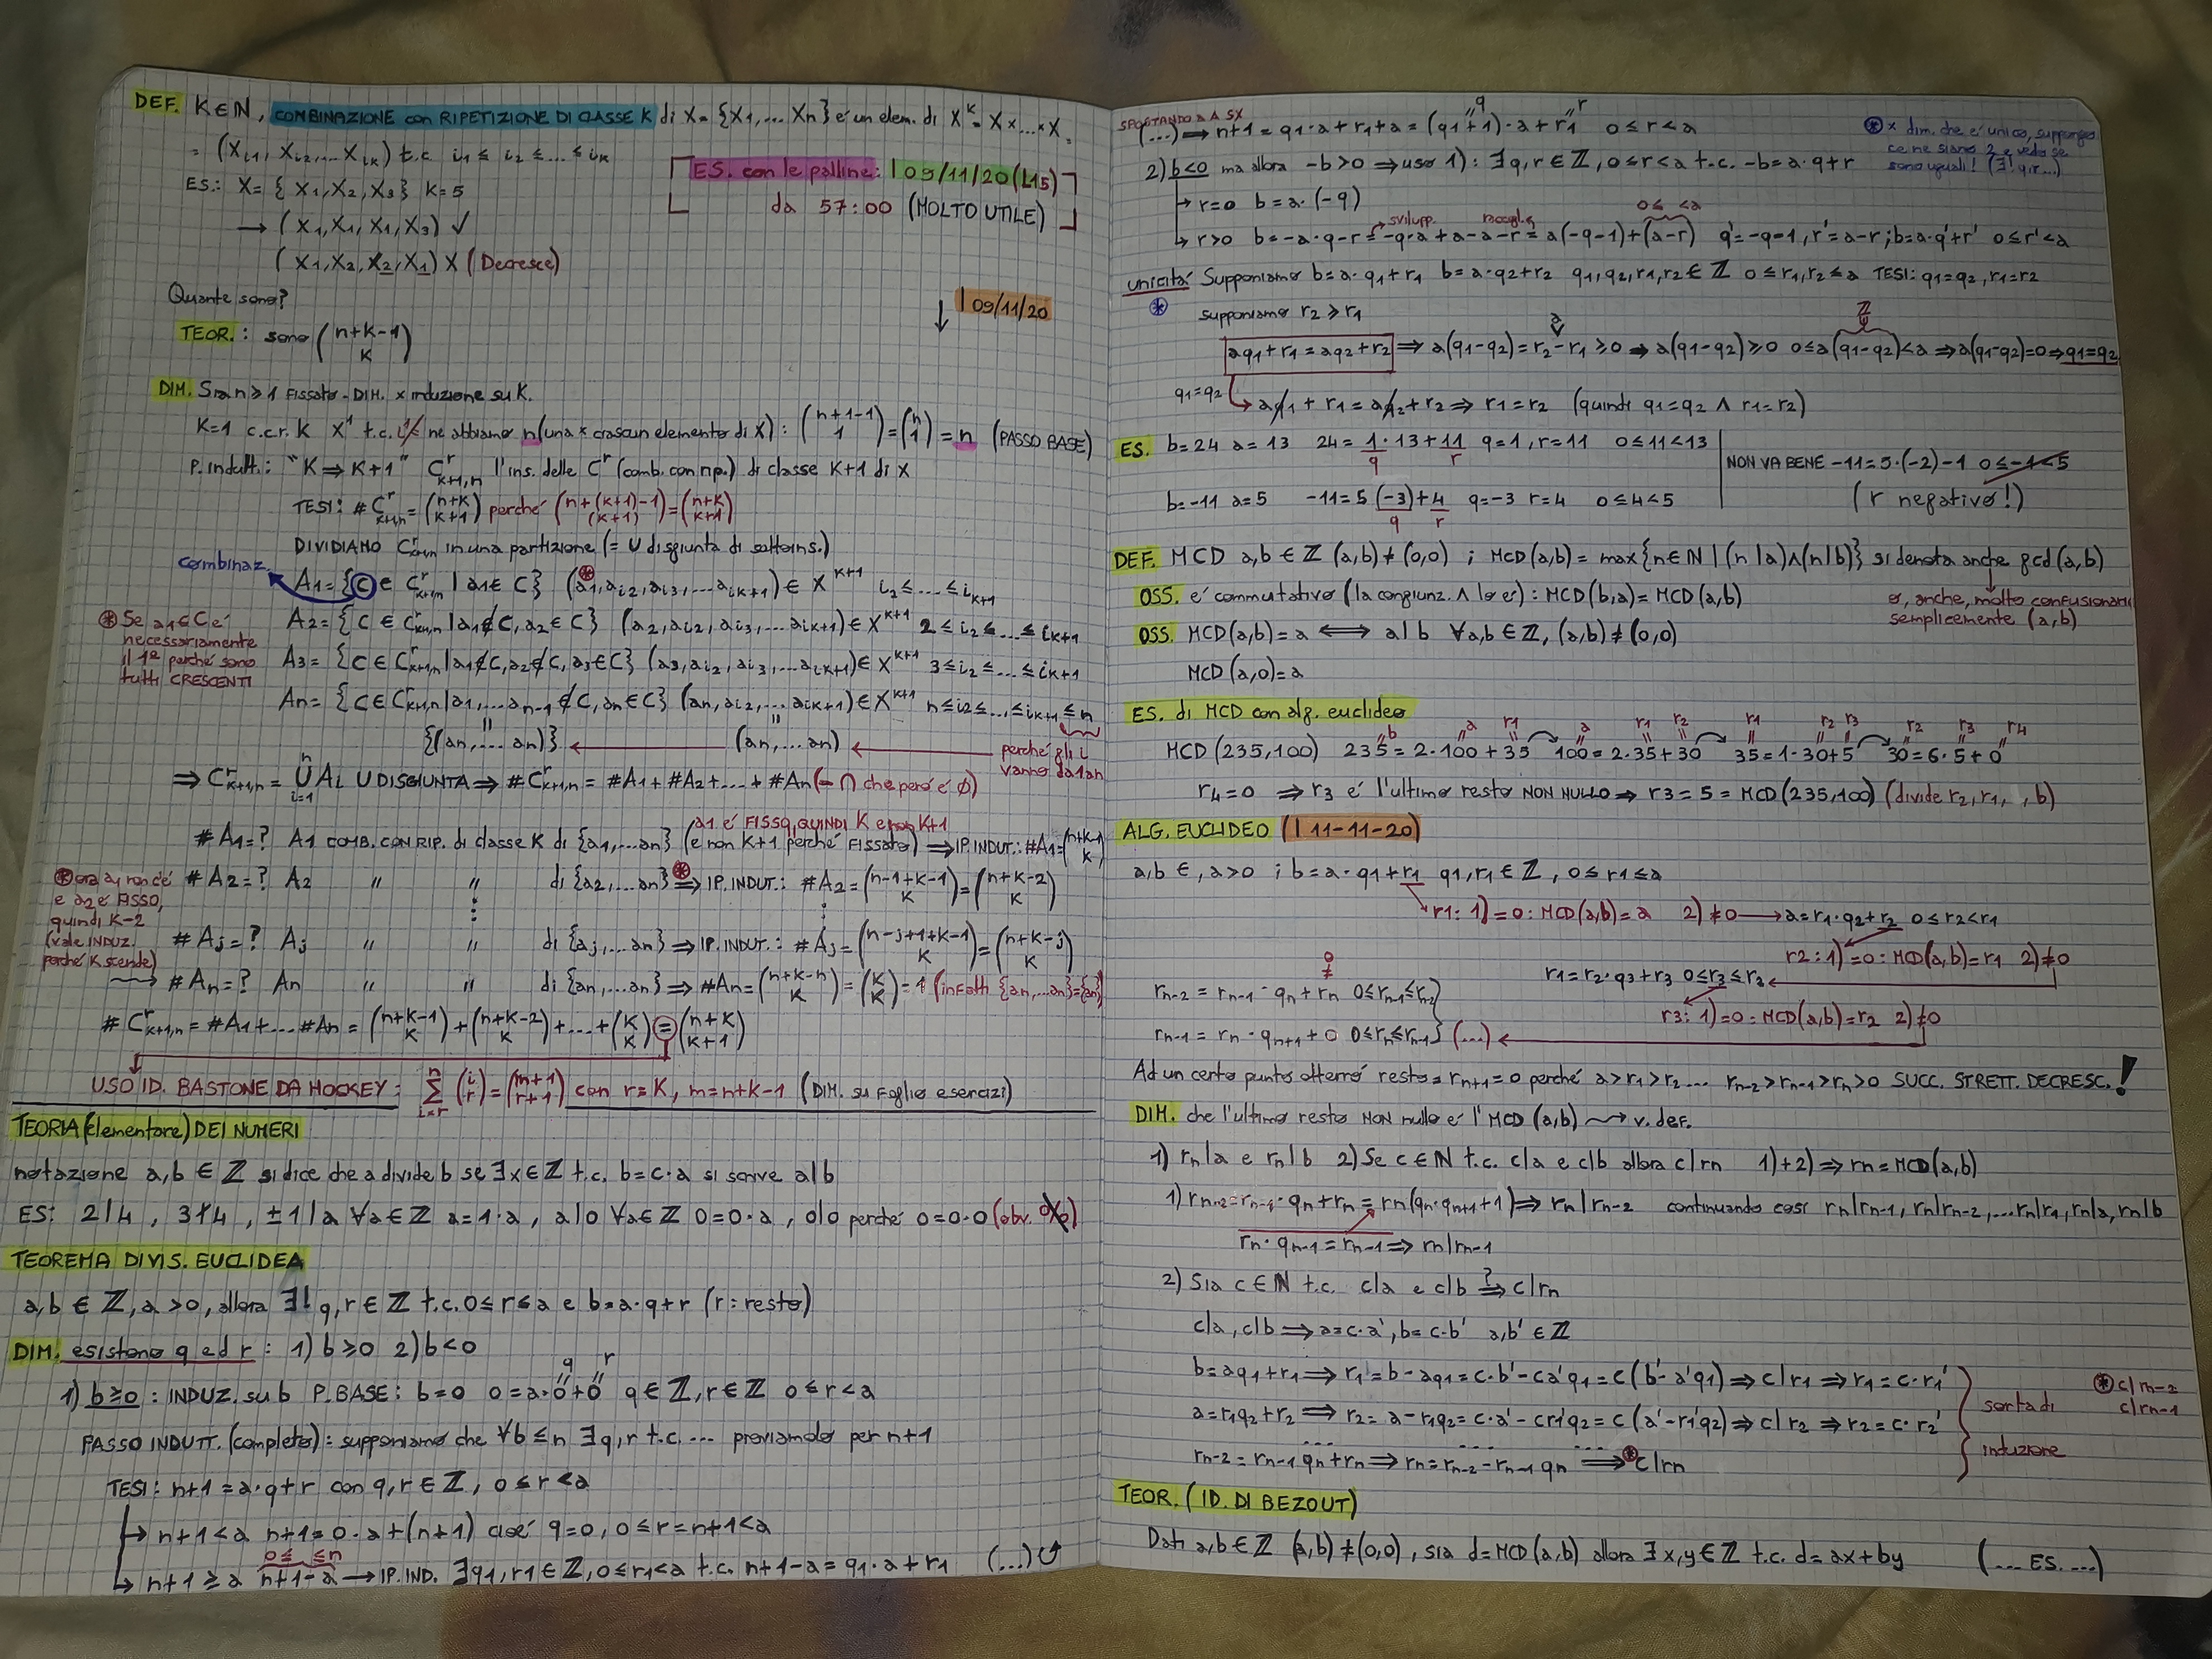 DEF. K∈N, COMBINAZIONE con RIPETIZIONE DI CLASSE K di X={X1,...Xn} é un elem. di X^K = X×...×X.
= (Xi1, Xi2,...Xik) t.c. i1≤i2≤...≤ik
ES.: X={X1,X2,X3} K=5
→ (X1,X1,X1,X3) ✓
(X1,X2,X2,X1) X (Decresce)
ES. con le palline: | 09/11/20 (L15)
da 57:00 (MOLTO UTILE)
Quante sono?
↓ | 09/11/20
TEOR.: sono (n+k-1 K)
DIM. Sia n≥1 FISSATO - DIM. x induzione su K.
K=1 c.c.r. k X^1 t.c. ne abbiamo n (una x ciascun elemento di X): (n+1-1 1) = (n 1) = n (PASSO BASE)
P. indutt.: "K⇒K+1" C^r_k+1,n l'ins. delle C^r (comb. con rip.) di classe K+1 di X
TESI: #C^r_k+1,n = (n+k k+1) perché (n+(k+1)-1 (k+1)) = (n+k k+1)
DIVIDIAMO C^r_k+1,n in una partizione (= U disgiunta di sottoins.)
combinaz.
A1={c∈C^r_k+1,n | a1∈C} (a1,ai2,ai3,...aik+1)∈X^k+1 i2≤...≤ik+1
⊛ Se a1∈C é
necessariamente
il 1° perché sono
tutti CRESCENTI
A2={C∈C^r_k+1,n | a1∉C, a2∈C} (a2,ai2,ai3,...aik+1)∈X^k+1 2≤i2≤...≤ik+1
A3={C∈C^r_k+1,n | a1∉C, a2∉C, a3∈C} (a3,ai2,ai3,...aik+1)∈X^k+1 3≤i2≤...≤ik+1
An={C∈C^r_k+1,n | a1,...an-1∉C, an∈C} (an,ai2,...aik+1)∈X^k+1 n≤i2≤...≤ik+1≤n
{(an,...an)} ← (an,...an) ← perché gli i
vanno da 1 a n
⇒ C^r_k+1,n = n U i=1 Ai U DISGIUNTA ⇒ #C^r_k+1,n = #A1+#A2+...+#An (- ∩ che peró é ∅)
#A1=? A1 COMB. CON RIP. di classe K di {a1,...an} (a1 é FISSO, QUINDI K e non K+1
(e non K+1 perché FISSATO) ⇒ IP. INDUT.: #A1=(n+k-1 K)
#A2=? A2 " " di {a2,...an} ⊛⇒ IP. INDUT.: #A2=(n-1+k-1 K)=(n+k-2 K)
⊛ ora a1 non c'é
e a2 é FISSO,
quindi K-2
(vale INDUZ.
perché K scende)
#Aj=? Aj " " di {aj,...an} ⇒ IP. INDUT.: #Aj=(n-j+1+k-1 K)=(n+k-j K)
#An=? An " " di {an,...an} ⇒ #An=(n+k-n K)=(K K)=1 (infatti {an,...an}={an})
#C^r_k+1,n = #A1+...#An = (n+k-1 K)+(n+k-2 K)+...+(K K)=(n+k k+1)
USO ID. BASTONE DA HOCKEY: n Σ i=r (i r)=(m+1 r+1) con r=K, m=n+k-1 (DIM. su foglio esercizi)
TEORIA (elementare) DEI NUMERI
notazione a,b∈ℤ si dice che a divide b se ∃x∈ℤ t.c. b=c·a si scrive a|b
ES: 2|4, 3∤4, ±1|a ∀a∈ℤ a=1·a, a|0 ∀a∈ℤ 0=0·a, 0|0 perché 0=0·0 (obv. 0/0)
TEOREMA DIVIS. EUCLIDEA
a,b∈ℤ, a>0, allora ∃! q,r∈ℤ t.c. 0≤r≤a e b=a·q+r (r=resto)
DIM. esistono q ed r: 1) b≥0 2) b<0
q r
1) b≥0: INDUZ. su b P. BASE: b=0 0=a·0+0 q∈ℤ, r∈ℤ 0≤r<a
PASSO INDUTT. (completo): supponiamo che ∀b≤n ∃q,r t.c. ... proviamolo per n+1
TESI: n+1=a·q+r con q,r∈ℤ, 0≤r<a
→ n+1<a n+1=0·a+(n+1) cioé q=0, 0≤r=n+1<a
0≤ ≤n
→ n+1≥a n+1-a → IP. IND. ∃q1,r1∈ℤ, 0≤r1<a t.c. n+1-a=q1·a+r1 (...)
SPOSTANDO a A SX
q r
(...) ⇒ n+1=q1·a+r1+a=(q1+1)·a+r1 0≤r<a
⊛ x dim. che é unico, suppongo
ce ne siano 2 e vedo se
sono uguali! (∃! q,r...)
2) b<0 ma allora -b>0 ⇒ uso 1): ∃q,r∈ℤ, 0≤r<a t.c. -b=a·q+r
→ r=0 b=a·(-q)
svilupp. raccolgo 0≤ <a
→ r>0 b=-a·q-r=-q·a+a-a-r=a(-q-1)+(a-r) q'=-q-1, r'=a-r; b=a·q'+r' 0≤r'<a
unicitá Supponiamo b=a·q1+r1 b=a·q2+r2 q1,q2,r1,r2∈ℤ 0≤r1,r2≤a TESI: q1=q2, r1=r2
⊛ supponiamo r2≥r1
aq1+r1=aq2+r2 ⇒ a(q1-q2)=r2-r1≥0 ⇒ a(q1-q2)≥0 0≤a(q1-q2)<a ⇒ a(q1-q2)=0 ⇒ q1=q2
q1=q2 → aq1+r1=aq2+r2 ⇒ r1=r2 (quindi q1=q2 ∧ r1=r2)
ES. b=24 a=13 24=1·13+11 q=1, r=11 0≤11<13
q r
NON VA BENE -11=5·(-2)-1 0≤-1<5
(r negativo!)
b=-11 a=5 -11=5(-3)+4 q=-3 r=4 0≤4<5
q r
DEF. MCD a,b∈ℤ (a,b)≠(0,0); MCD(a,b)=max{n∈ℕ | (n|a)∧(n|b)} si denota anche gcd(a,b)
o, anche, molto confusionari
semplicemente (a,b)
OSS. é commutativo (la congiunz. ∧ lo é): MCD(b,a)=MCD(a,b)
OSS. MCD(a,b)=a ⟺ a|b ∀a,b∈ℤ, (a,b)≠(0,0)
MCD(a,0)=a
ES. di MCD con alg. euclideo
b a r1 a r1 r2 r1 r2 r3 r2 r3 r4
MCD(235,100) 235=2·100+35 100=2·35+30 35=1·30+5 30=6·5+0
r4=0 ⇒ r3 é l'ultimo resto NON NULLO ⇒ r3=5=MCD(235,100) (divide r2,r1, ,b)
ALG. EUCLIDEO (| 11-11-20)
a,b∈, a>0; b=a·q1+r1 q1,r1∈ℤ, 0≤r1≤a
r1: 1)=0: MCD(a,b)=a 2)≠0 → a=r1·q2+r2 0≤r2<r1
r2: 1)=0: MCD(a,b)=r1 2)≠0
r1=r2·q3+r3 0≤r3≤r3
r3: 1)=0: MCD(a,b)=r2 2)≠0
0
≠
rn-2=rn-1·qn+rn 0≤rn-1≤rn-2
rn-1=rn·qn+1+0 0≤rn≤rn-1} (...)
Ad un certo punto otterró resto=rn+1=0 perché a>r1>r2... rn-2>rn-1>rn>0 SUCC. STRETT. DECRESC.!
DIM. che l'ultimo resto NON nullo é l'MCD(a,b) ⇝ v. def.
1) rn|a e rn|b 2) Se c∈ℕ t.c. c|a e c|b allora c|rn 1)+2) ⇒ rn=MCD(a,b)
1) rn-2=rn-1·qn+rn=rn(qn·qn+1+1) ⇒ rn|rn-2 continuando cosí rn|rn-1, rn|rn-2,...rn|r1, rn|a, rn|b
rn·qn-1=rn-1 ⇒ rn|rn-1
2) Sia c∈ℕ t.c. c|a e c|b ?⇒ c|rn
c|a, c|b ⇒ a=c·a', b=c·b' a,b'∈ℤ
b=aq1+r1 ⇒ r1=b-aq1=c·b'-ca'q1=c(b'-a'q1) ⇒ c|r1 ⇒ r1=c·r1'
a=r1q2+r2 ⇒ r2=a-r1q2=c·a'-cr1'q2=c(a'-r1'q2) ⇒ c|r2 ⇒ r2=c·r2'
... ... ...
rn-2=rn-1qn+rn ⇒ rn=rn-2-rn-1qn ⊛⇒ c|rn
sorta di
induzione
⊛ c|rn-2
c|rn-1
TEOR. (ID. DI BEZOUT)
Dati a,b∈ℤ (a,b)≠(0,0), sia d=MCD(a,b) allora ∃x,y∈ℤ t.c. d=ax+by (... ES. ...)